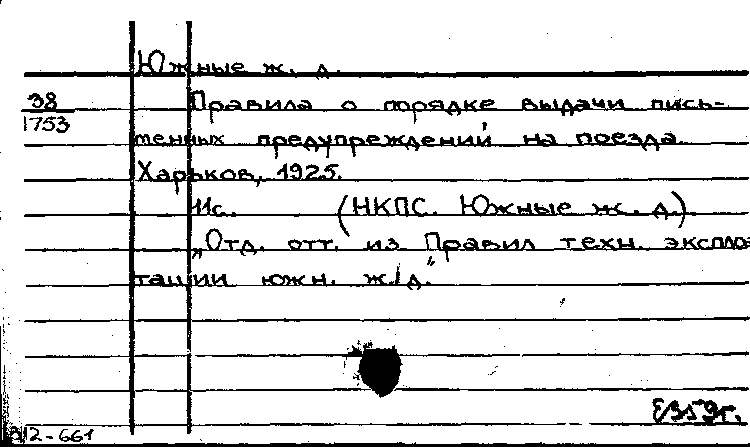 Южные ж. д.
38
1753
Правила о порядке выдачи пись-
менных предупреждений на поезда.
Харьков, 1925.
11с. (НКПС. Южные ж. д.).
„Отд. отт. из Правил техн. эксплоа
тации южн. ж. д."